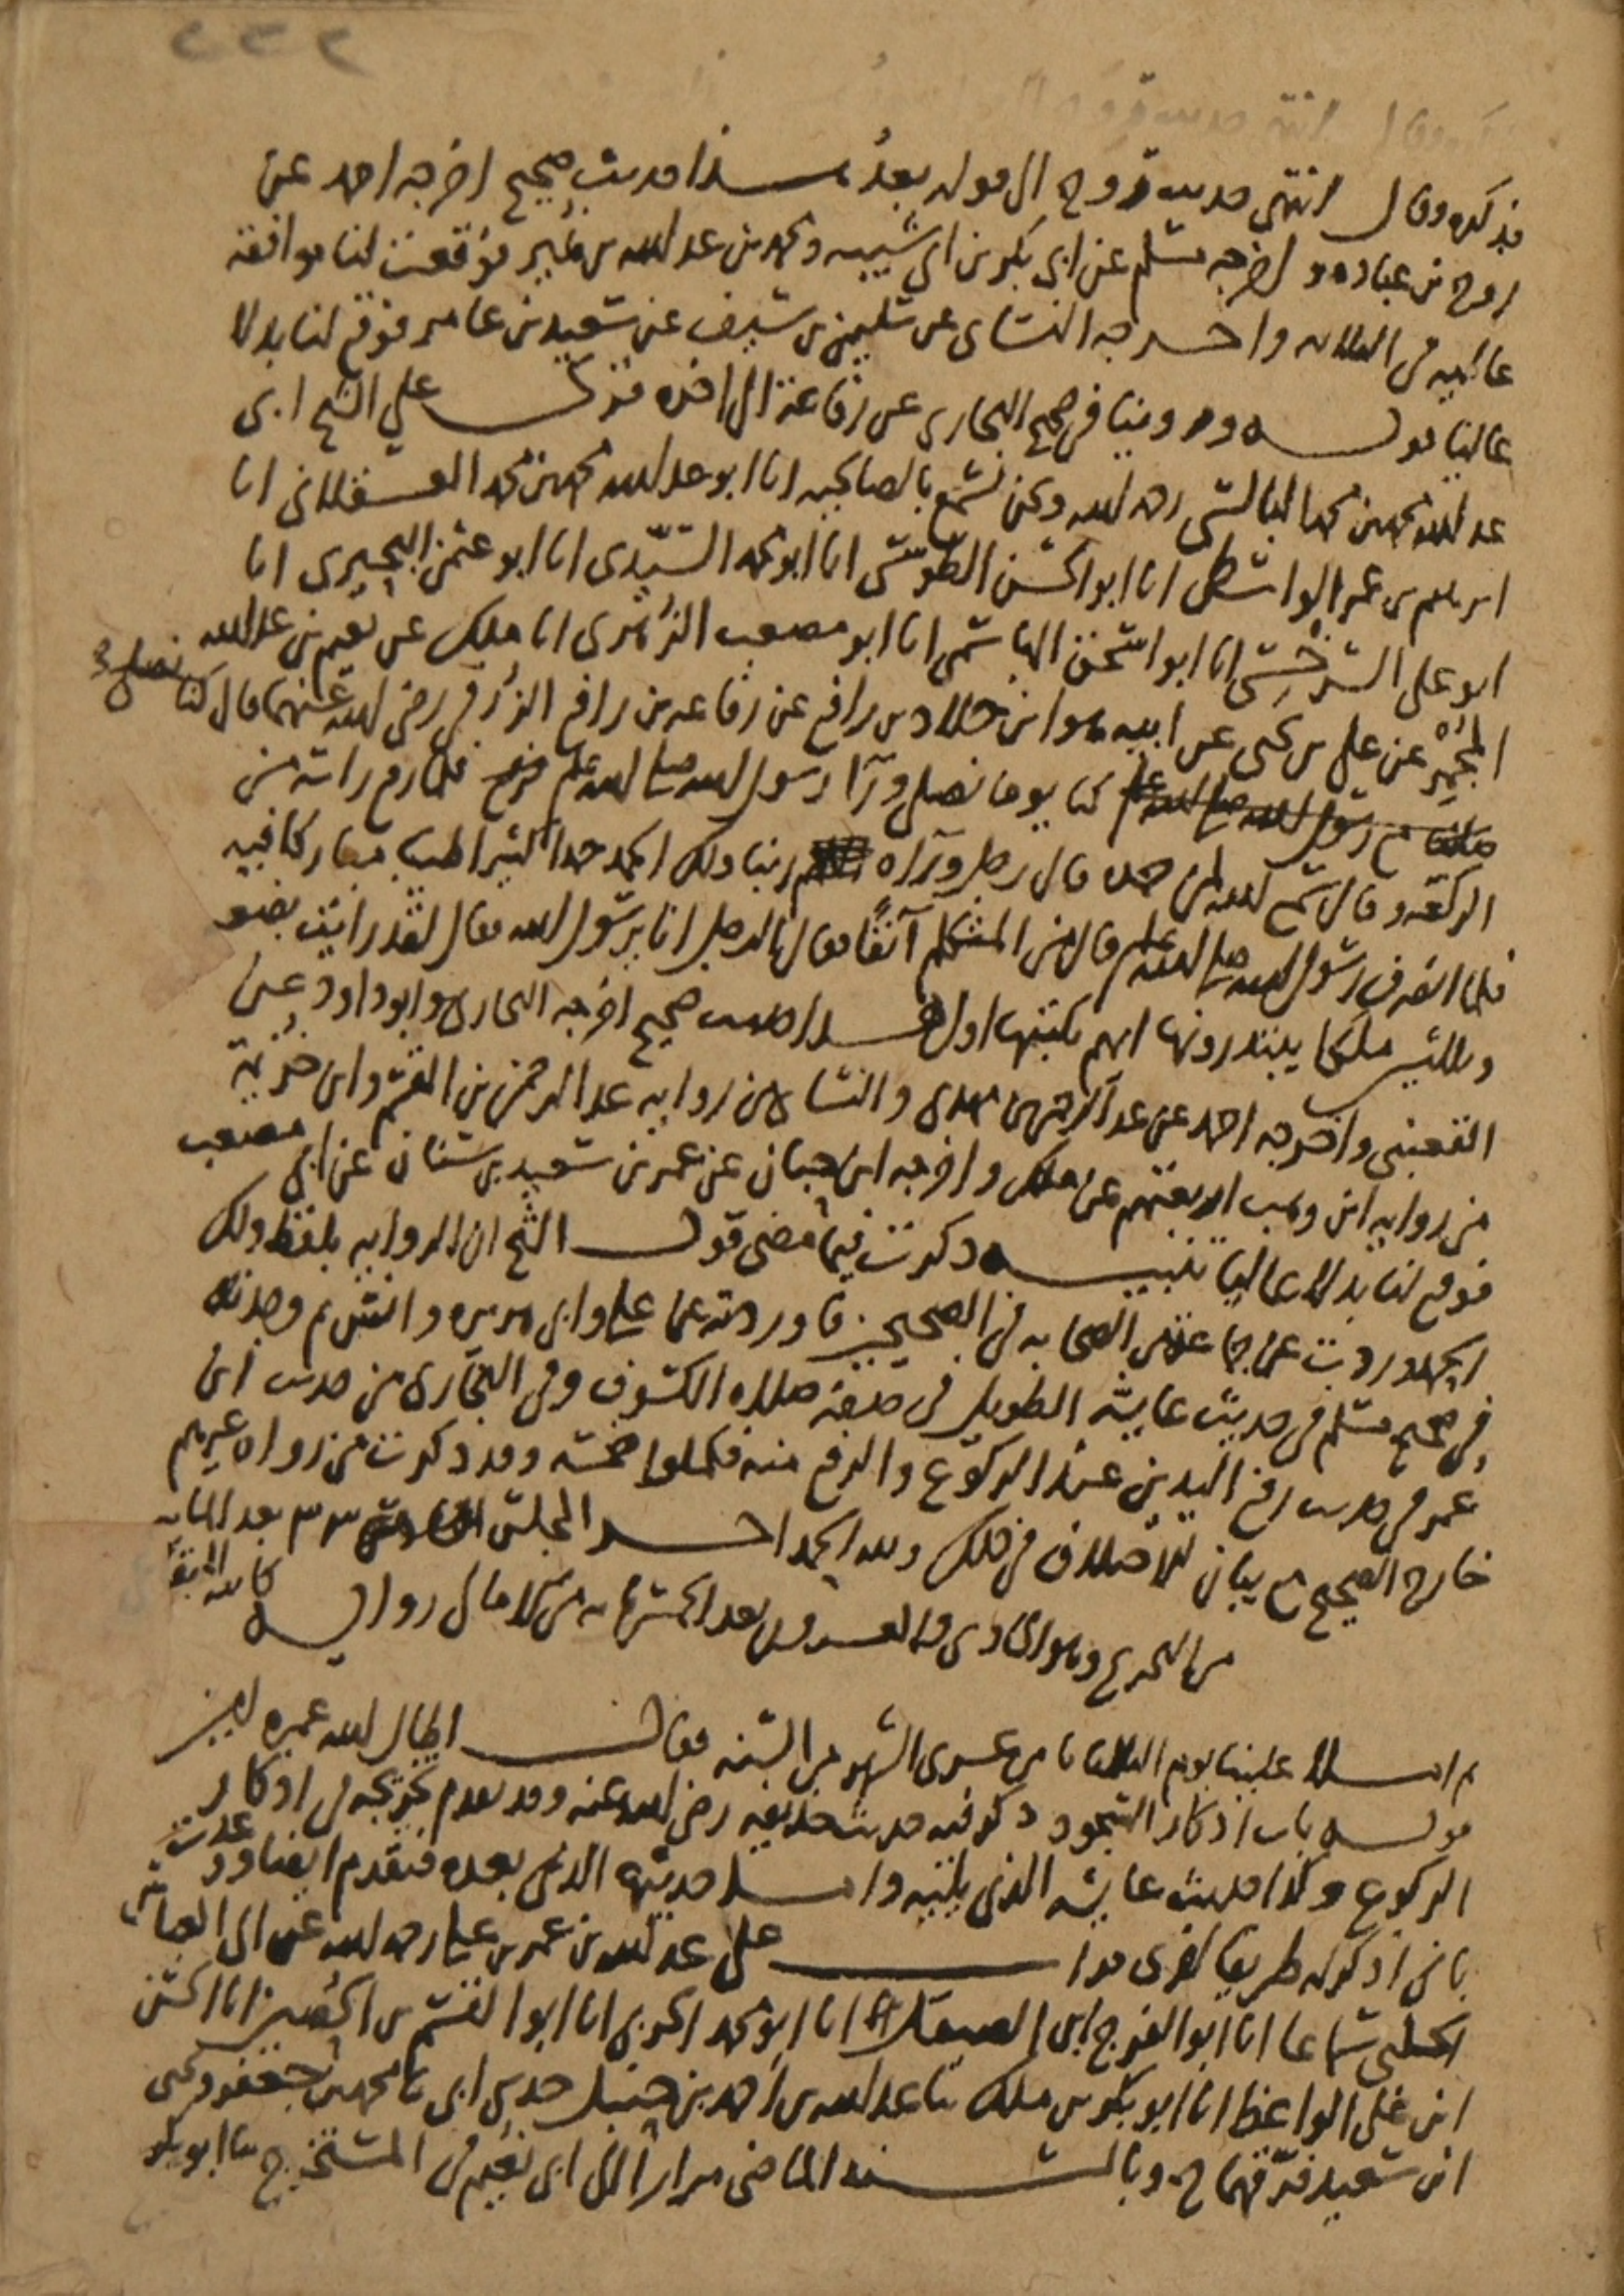 ٢٣٢
فذكره وقال انتهى حديث روح الى قوله بعد هذا حديث صحيح اخرجه احمد عن
روح بن عباده واخرجه مسلم عن ابي بكر بن ابي شيبه ومحمد بن عبد الله بن نمير فوقعت لنا موافقة
عاليه في الثلاثه واخرجه النسائي عن سليمن بن سيف عن سعيد بن عامر فوقع لنا بدلا
عاليا قوله وروينا في صحيح البخاري عن رفاعة الى اخره قرات على الشيخ ابي
عبد الله محمد بن محمد البالسي رحمه الله ونحن نسمع بالصالحيه انا ابو عبد الله محمد بن محمد العسقلاني انا
ابرهيم بن عمر الواسطي انا ابو الحسن الطوسي انا ابو محمد السيدي انا ابو عثمن البحيري انا
ابو علي السرخسي انا ابو اسحق الهاشمي انا ابو مصعب الزهري انا ملك عن نعيم بن عبد الله
المجمر عن علي بن يحيى عن ابيه هو ابن خلاد بن رافع عن رفاعه بن رافع الزرقي رضي الله عنهما قال كنا نصلي
مع رسول الله صلى الله عليه كنا يوما نصلي ورآ رسول الله صلى الله عليه فلما رفع راسه من
الركعه وقال سمع الله لمن حمده قال رجل وراه ربنا ولك الحمد حمدا كثيرا طيبا مباركا فيه
فلما انصرف رسول الله صلى الله عليه وسلم قال من المتكلم آنفا فقال الرجل انا يرسول الله فقال لقد رايت بضعه
وثلاثين ملكا يبتدرونها ايهم يكتبها اول هذا حديث صحيح اخرجه البخاري وابو داود عن
القعنبي واخرجه احمد عن عبد الرحمن بن مهدي والنسائي من رواية عبد الرحمن بن القسم وابن خزيمة
من رواية ابن وهب اربعتهم عن ملك واخرجه ابن حبان عن عمر بن سعيد بن سنان عن ابي مصعب
فوقع لنا بدلا عاليا تنبيه ذكرت فيما مضى قول الشيخ ان الروايه بلفظ ولك
الحمد وردت عن جماعة من الصحابه في الصحيحين فاوردته عن علي وابي هريره وانس ثم وجدته
في صحيح مسلم في حديث عايشه الطويل في صفة صلاه الكسوف وفي البخاري من حديث ابن
عمر في حديث رفع اليدين عند الركوع والرفع منه فكملوا خمسة وقد ذكرت من رواه غيرهم
خارج الصحيح مع بيان الاختلاف في ذلك ولله الحمد اخر المجلس ٣٣ بعد المايه
من التخريج وهو الحادي والعشرون بعد الخمسمايه من الامالي روايه كاتبه
ثم املا علينا يوم الثلاثا ثامن عشري الشهر من السنه فقال اطال الله عمره امين
قوله باب اذكار السجود ذكر فيه حديث حذيفه رضي الله عنه وقد تقدم تخريجه في اذكار
الركوع وكذا حديث عايشه الذي يليه واما حديثها الذي بعده فتقدم ايضا ووعدت
باني اذكر له طريقا اخرى قرات على عبد الله بن عمر بن علي رحمه الله عن ابي العباس
الحلبي سماعا انا ابو الفرج ابن الصيقل انا ابو محمد الحربي انا ابو القسم بن الحصين انا الحسن
ابن علي الواعظ انا ابو بكر بن ملك ثنا عبد الله بن احمد بن حنبل حدثني ابي ثنا محمد بن جعفر ويحيى
ابن سعيد فرقهما ح وبالسند الماضي مرارا الى ابي نعيم في المستخرج ثنا ابو بكر